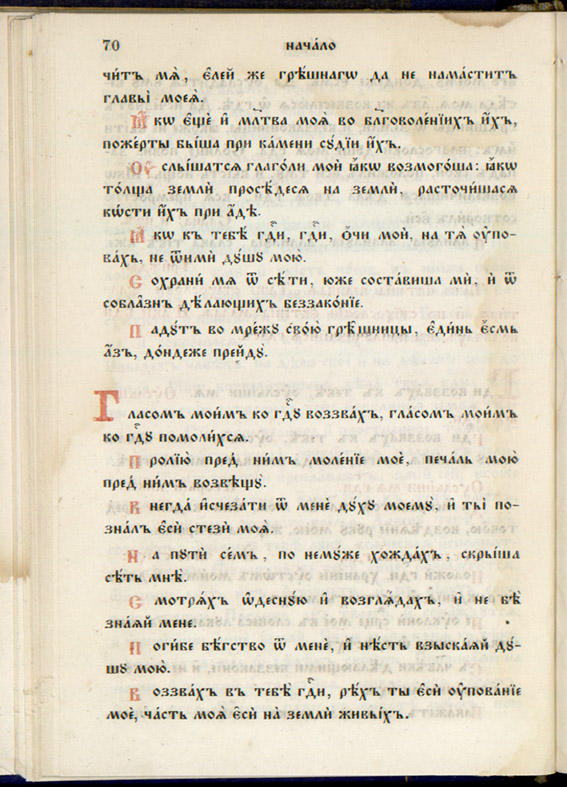 70 нача́ло
чи́тъ мѧ̀, є҆ле́й же грѣ́шнагѡ да не нама́ститъ
главы̀ моеѧ̀.
Ꙗ҆́кѡ є҆щѐ и҆ мл҃тва моѧ̀ во бл҃говоле́нїихъ и҆́хъ,
поже́рты бы́ша при ка́мени сꙋдїи̑ и҆́хъ.
Оу҆слы́шатсѧ глаго́ли мои̑ ꙗ҆́кѡ возмого́ша: ꙗ҆́кѡ
то́лща землѝ просѣ́десѧ на землѝ, расточи́шасѧ
кѡ́сти и҆́хъ при а҆́дѣ.
Ꙗ҆́кѡ къ тебѣ̀ гдⷭ҇и, гдⷭ҇и, ѻ҆́чи моѝ, на тѧ̀ оу҆пова́хъ, не ѿимѝ дꙋ́шꙋ мою̀.
Сохрани́ мѧ ѿ сѣ́ти, ю҆́же соста́виша мѝ, и҆ ѿ
собла́знъ дѣ́лающихъ беззако́нїе.
Падꙋ́тъ во мре́жꙋ свою̀ грѣ́шницы, є҆ди́нъ є҆́смь
а҆́зъ, до́ндеже прейдꙋ̀.
Гла́сомъ мои́мъ ко гдⷭ҇ꙋ воззва́хъ, гла́сомъ мои́мъ
ко гдⷭ҇ꙋ помоли́хсѧ.
Пролїю̀ пред̾ ни́мъ моле́нїе моѐ, печа́ль мою̀
пред̾ ни́мъ возвѣщꙋ̀.
Внегда̀ и҆счеза́ти ѿ менє̀ дꙋ́хꙋ моемꙋ̀, и҆ ты̀ позна́лъ є҆сѝ стезѝ моѧ̀.
На пꙋтѝ се́мъ, по немꙋ́же хожда́хъ, скры́ша
сѣ́ть мнѣ̀.
Смотрѧ́хъ ѡ҆деснꙋ́ю и҆ возглѧ́дахъ, и҆ не бѣ̀
зна́ѧй мене.
Поги́бе бѣ́гство ѿ менє̀, и҆ нѣ́сть взыска́ѧй дꙋ́шꙋ мою̀.
Воззва́хъ къ тебѣ̀ гдⷭ҇и, рѣ́хъ ты є҆сѝ оу҆пова́нїе
моѐ, ча́сть моѧ̀ є҆сѝ на землѝ живы́хъ.